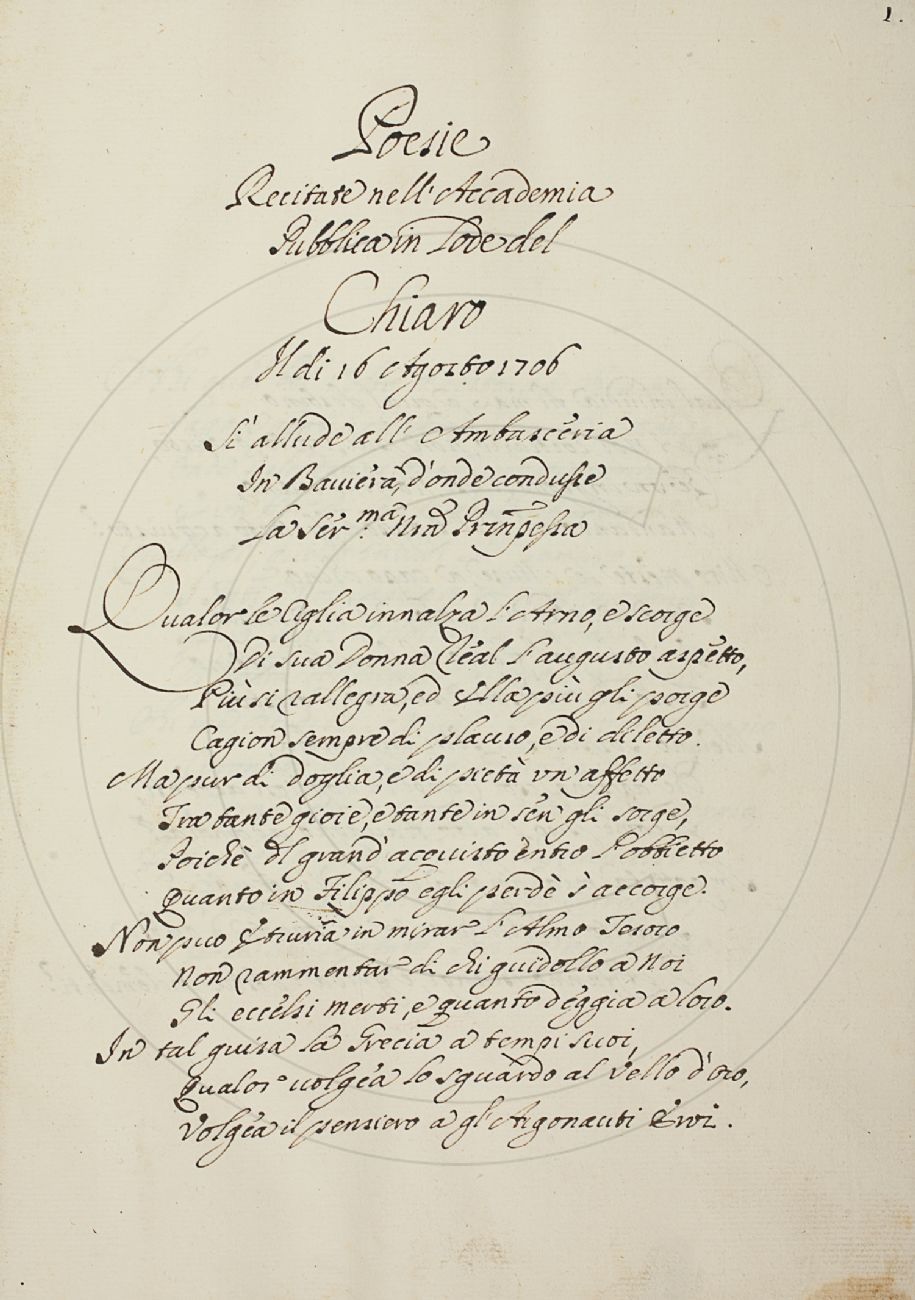 1.
Poesie
Recitate nell' Accademia
Pubblica in Lode del
Chiaro
Il di 16 Agosto 1706
Si allude all' Ambasceria
In Baviera, d'onde condusse
La Ser.ma Nra Prinpessa
Qualor le Ciglia innalza l'Arno, e scorge
Di sua Donna Real l'augusto aspetto,
Più si rallegra, ed Ella più gli porge
Cagion sempre di plauso, e di diletto.
Ma pur di doglia, e di pietà un affetto
Tra tante gioie, e tante in sen gli sorge,
Poichè del grand' acquisto entro l'obbietto
Quanto in Filippo egli perdè s'accorge.
Non puo Etruria in mirar l'Almo Tesoro
Non rammentar di chi guidollo a Noi
Gli eccelsi merti, e quanto deggia a loro.
In tal guisa la Grecia a tempi suoi,
Qualor volgea lo sguardo al Vello d'oro,
Volgea il pensiero a gl'Argonauti Eroi.